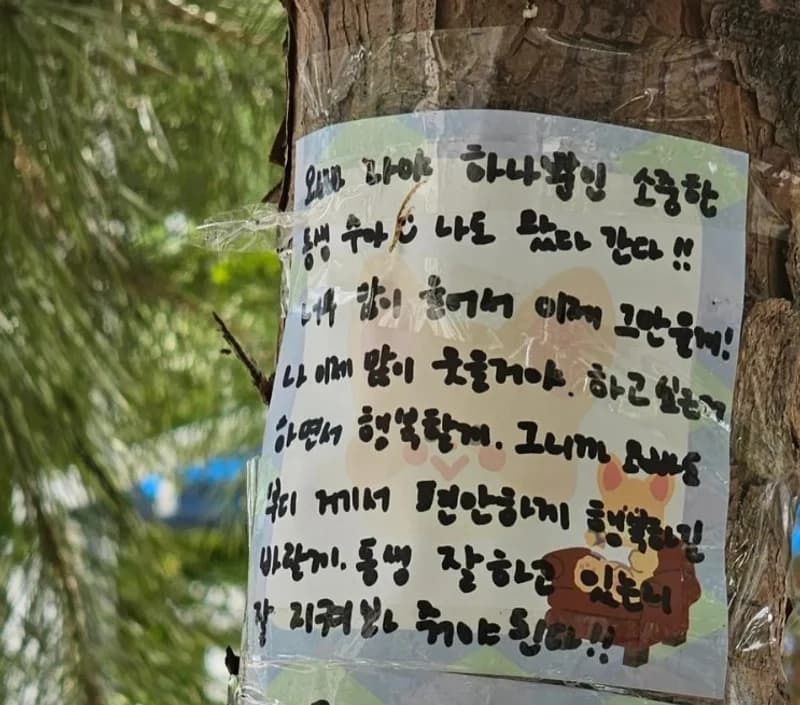 오빠 나야 하나뿐인 소중한
동생 수아 나도 왔다 간다!!
너무 많이 울어서 이제 그만울게!
나 이제 많이 웃을거야. 하고싶은거
하면서 행복할게. 그니까 오빠도
부디 거기서 편안하게 행복하길
바랄게. 동생 잘하고 있는지
잘 지켜봐 줘야 된다!!